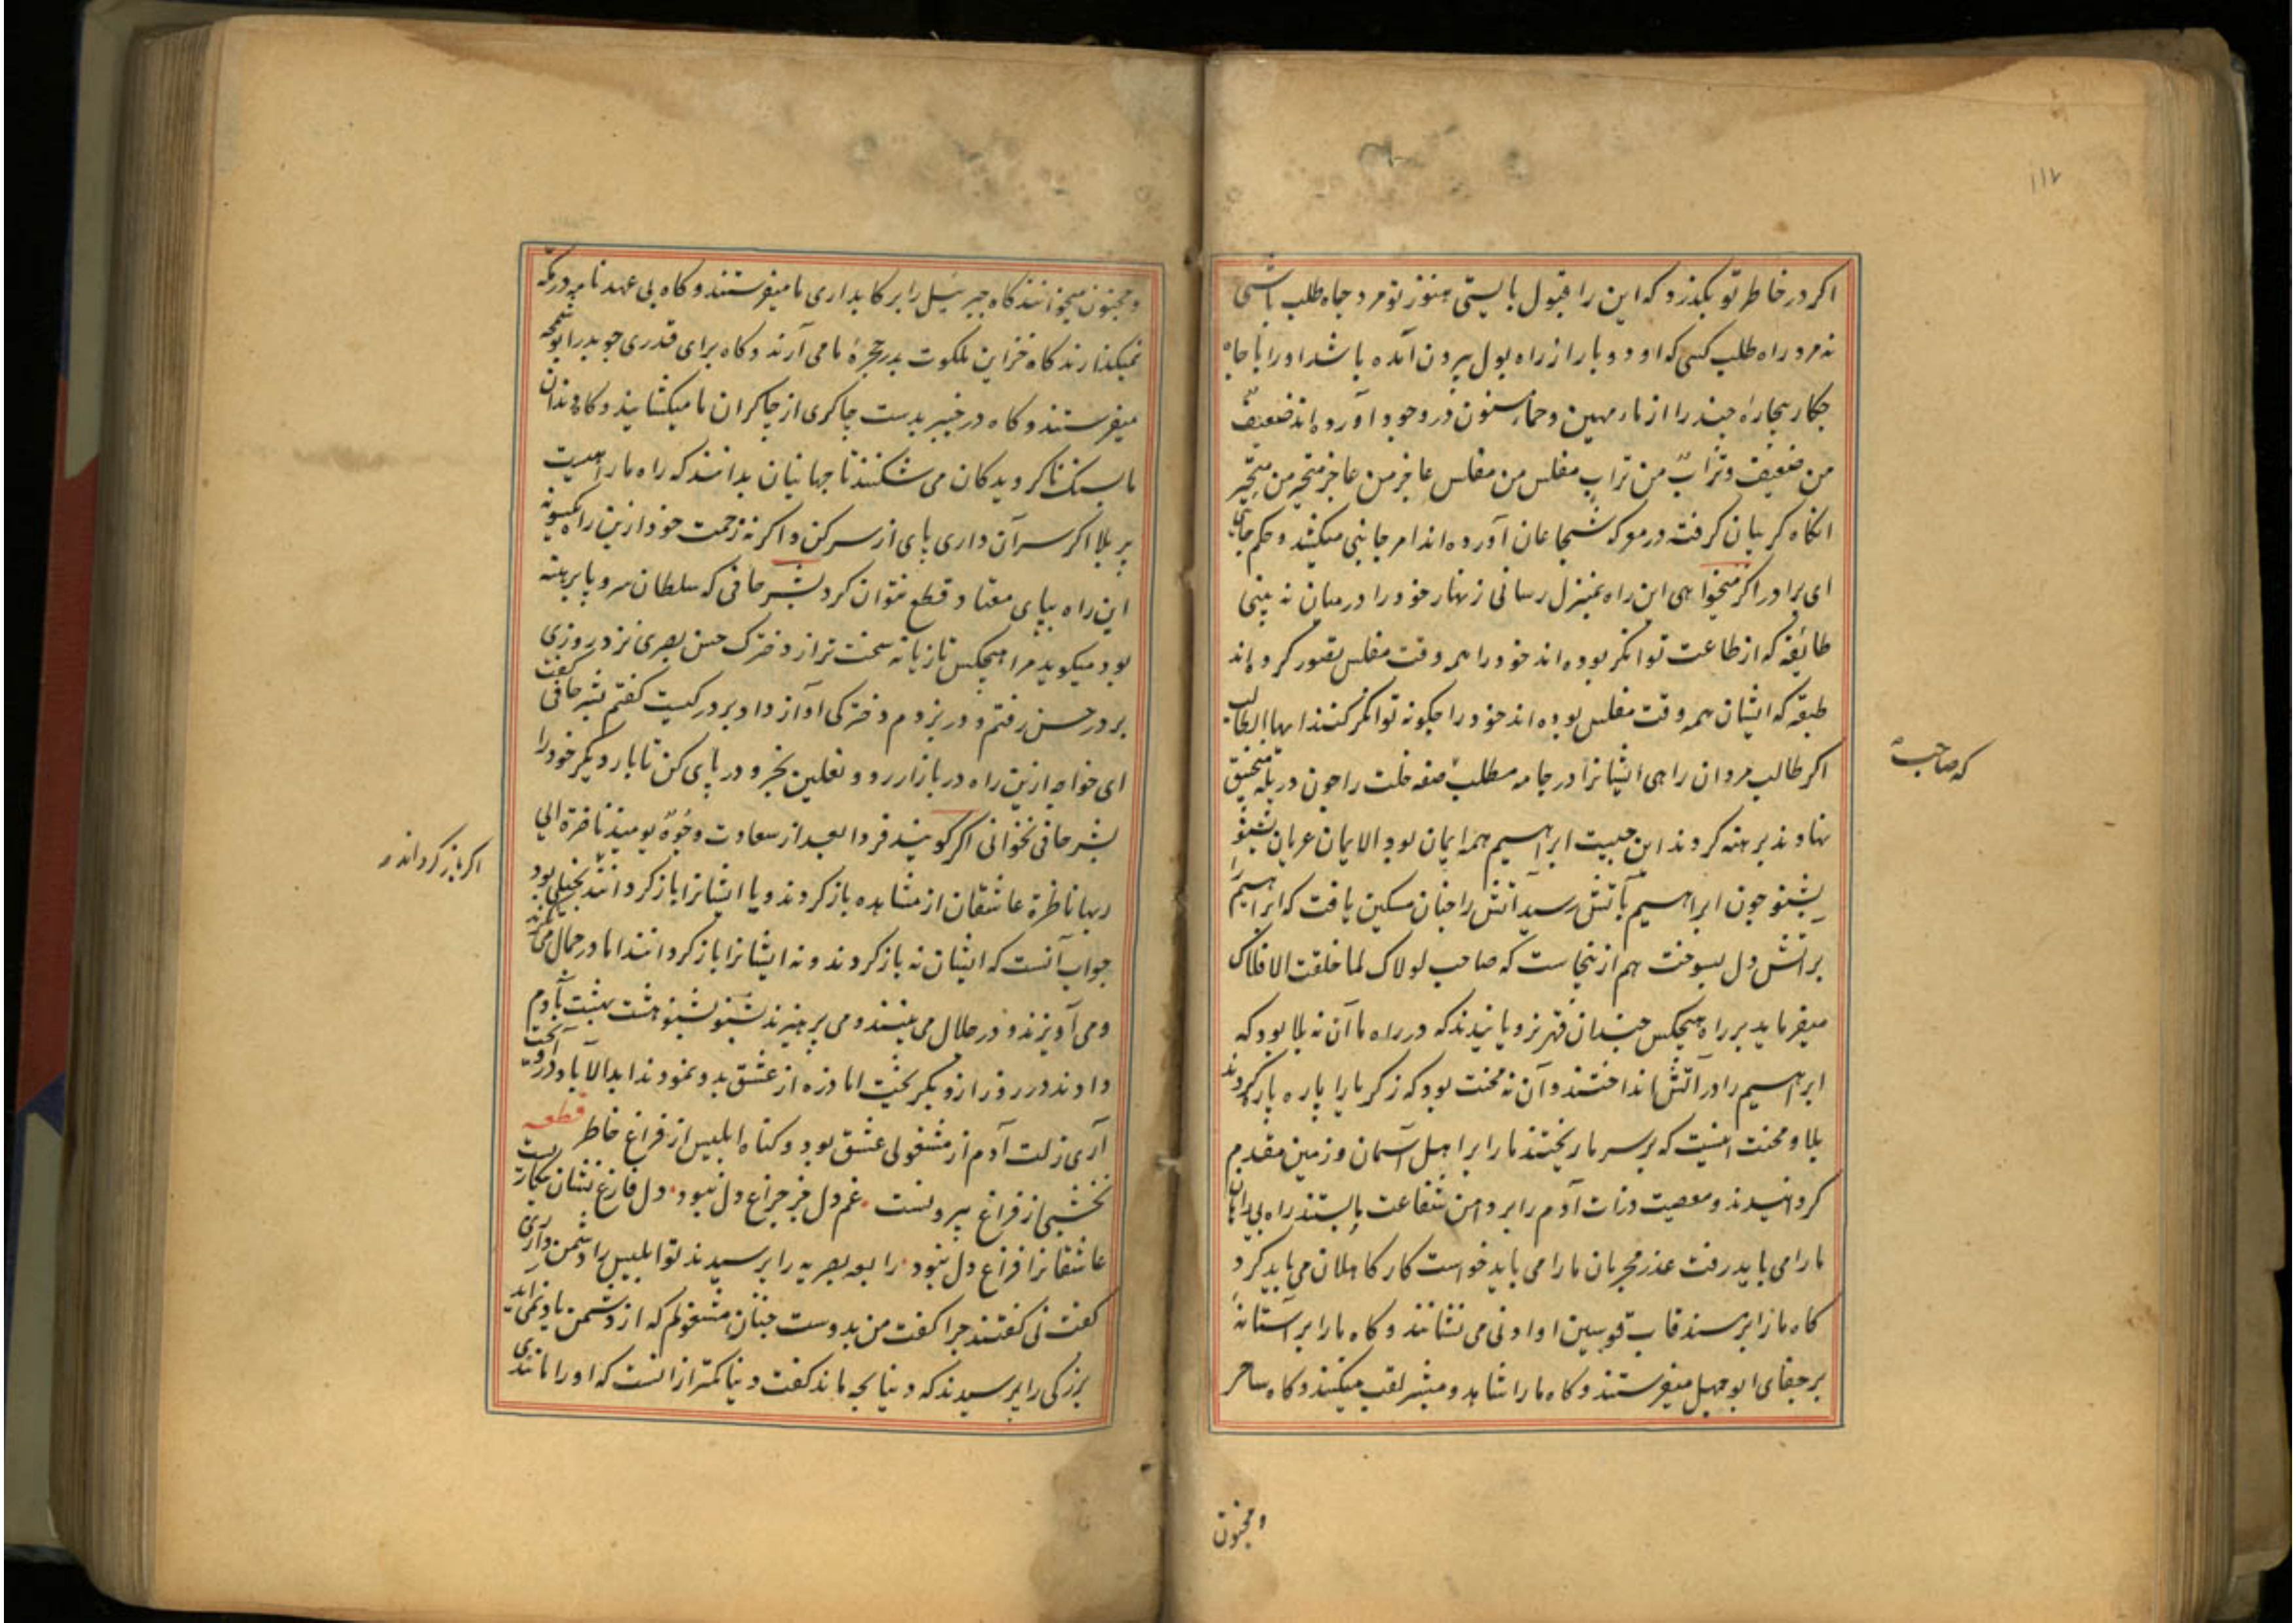 ۱۱۷
اکر در خاطر تو بکذرد که این را قبول بایستی هنوز تو مرد جاه طلب باشی
نه مرد راه طلب کسی که او دو بار از راه بول بیرون آمده باشد او را با جاه
جکار بیجارهٔ جند را از ماء مهین و حماء مسنون در وجود آورده اند ضعیفٌ
من ضعیف و ترابٌ من تراب مفلس من مفلس عاجز من عاجز متحیر من متحیر
انکاه کریبان کرفته در معرکه شجاعان آورده اند امر جانبی میکشد و حکم جانبی
ای برادر اکر میخواهی این راه بمنزل رسانی زنهار خود را در میان نه بینی
طائفه که از طاعت توانکر بوده اند خود را همه وقت مفلس تصور کرده اند
طبقه که ایشان همه وقت مفلس بوده اند خود را جکونه توانکر کنند ایها الطالب
اکر طالب مردان راهی ایشانرا در جامه مطلب صفه خلت را جون در پلهٔ منجنیق
که صاحب
نهادند برهنه کردند این جیست ابراهیم همه ایمان بود الایمان عریان بشنو
بشنو جون ابراهیم بآتش رسید آتش را جنان مسکین یافت که ابراهیم را
بر آتش دل بسوخت هم ازینجاست که صاحب لولاک لما خلقت الافلاک
میفرماید بر راه هیجکس جندان قهر نرویانیدند که در راه ما آن نه بلا بود که
ابراهیم را در آتش انداختند و آن نه محنت بود که زکریا را پاره پاره کردند
بلا و محنت اینست که بر سر ما ریختند ما را بر اهل آسمان و زمین مقدم
کردانیدند و معصیت ذرات آدم را بر دامن شفاعت ما بستند راه بی راهان
ما را می باید رفت عذر مجرمان ما را می باید خواست کار کاهلان می باید کرد
کاه ما را بر مسند قاب قوسین او ادنی می نشانند و کاه ما را بر آستانهٔ
بر جفای ابوجهل میفرستند و کاه ما را شاهد و مبشر لقب میکنند و کاه ساحر
و مجنون
و مجنون میخوانند کاه جبرئیل را برکابداری ما میفرستند و کاه بی عهدنامه در مکه
نمیکذارند کاه خزاین ملکوت بدر حجرهٔ ما می آرند و کاه برای قدری جو بدر ابوشحمه
میفرستند و کاه در خیبر بدست جاکری از جاکران ما میکشایند و کاه دندان
ما بسنک ناکرویدکان می شکنند تا جهانیان بدانند که راه ما راهیست
پر بلا اکر سر آن داری پای از سر کن و اکر نه زحمت خود ازین راه یکسو نه
این راه بپای معتاد قطع نتوان کرد بشر حافی که سلطان سر و پا برهنه
بود میکوید مرا هیجکس تازیانه سخت تر از دخترک حسن بصری نزد روزی
بر در حسن رفتم و در بزدم دخترکی آواز داد بر در کیست کفتم بشر حافی کفت
ای خواجه ازین راه در بازار رو و نعلین بخر و در پای کن تا بار دیکر خود را
بشر حافی نخوانی اکر کویند فردا بعد از سعادت وجوهٌ یومئذ ناضرة الی
ربها ناظرة عاشقان از مشاهده باز کردند و یا ایشانرا باز کردانند بخیلی بود
اکر باز کردانند
جواب آنست که ایشان نه باز کردند و نه ایشانرا باز کردانند اما در جمال می نکرند
و می آویزند و در جلال می بینند و می پرهیزند بشنو بشنو هشت بهشت بآدم
دادند در روز ازو بکریخت اما ذره از عشق بدو نمودند ابد الآباد درو آویخت
آری زلت آدم از مشغولی عشق بود و کناه ابلیس از فراغ خاطر قطعه
نخشبی از فراغ بیرونست غم دل جز جراغ دل نبود دل فارغ نشان بیکاریست
عاشقانرا فراغ دل نبود رابعه بصریه را پرسیدند تو ابلیس را دشمن داری
کفت نی کفتند جرا کفت من بدوست جنان مشغولم که از دشمن یاد نمی آید
بزرکی را پرسیدند که دنیا بجه ماند کفت دنیا کمتر از آنست که او را مانندی